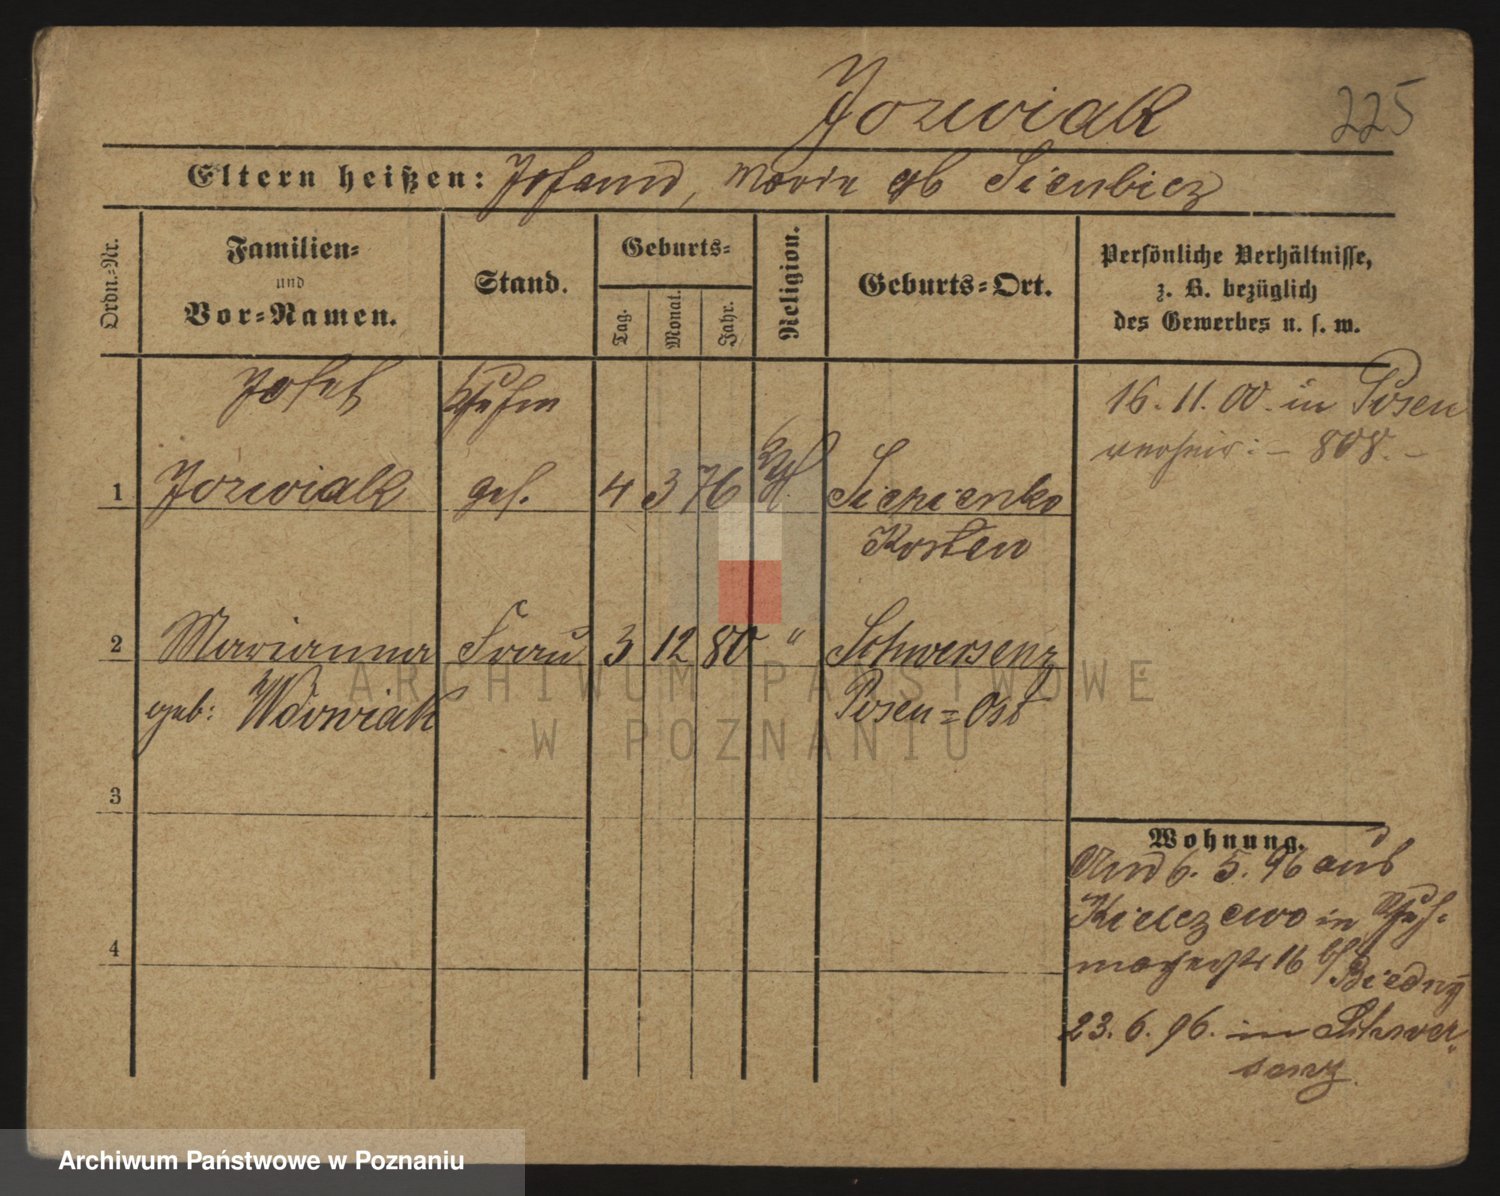 Jozwiak 225
Eltern heißen: Johann, Marie gb Sienkicz
Ordn.-Nr.
Familien-
und
Vor-Namen.
Stand.
Geburts-
Tag.
Monat.
Jahr.
Religion.
Geburts-Ort.
Persönliche Verhältnisse,
z. B. bezüglich
des Gewerbes u. s. w.
Josef
16. 11. 00. in Posen
verheir: – 808. –
1 Jozwiak ges. 4 3 76 Sierienko
Kosten
2 Marianna Frau 3 12 80 " Schwersenz
geb: Wdowiak Posen=Ost
3
Wohnung.
6. 5. 96 aus
Kielczewo in Schuh-
macherstr 16 b/ Biedny
4
23. 6. 96. in Schwer-
senz
ARCHIWUM PAŃSTWOWE
W POZNANIU
Archiwum Państwowe w Poznaniu